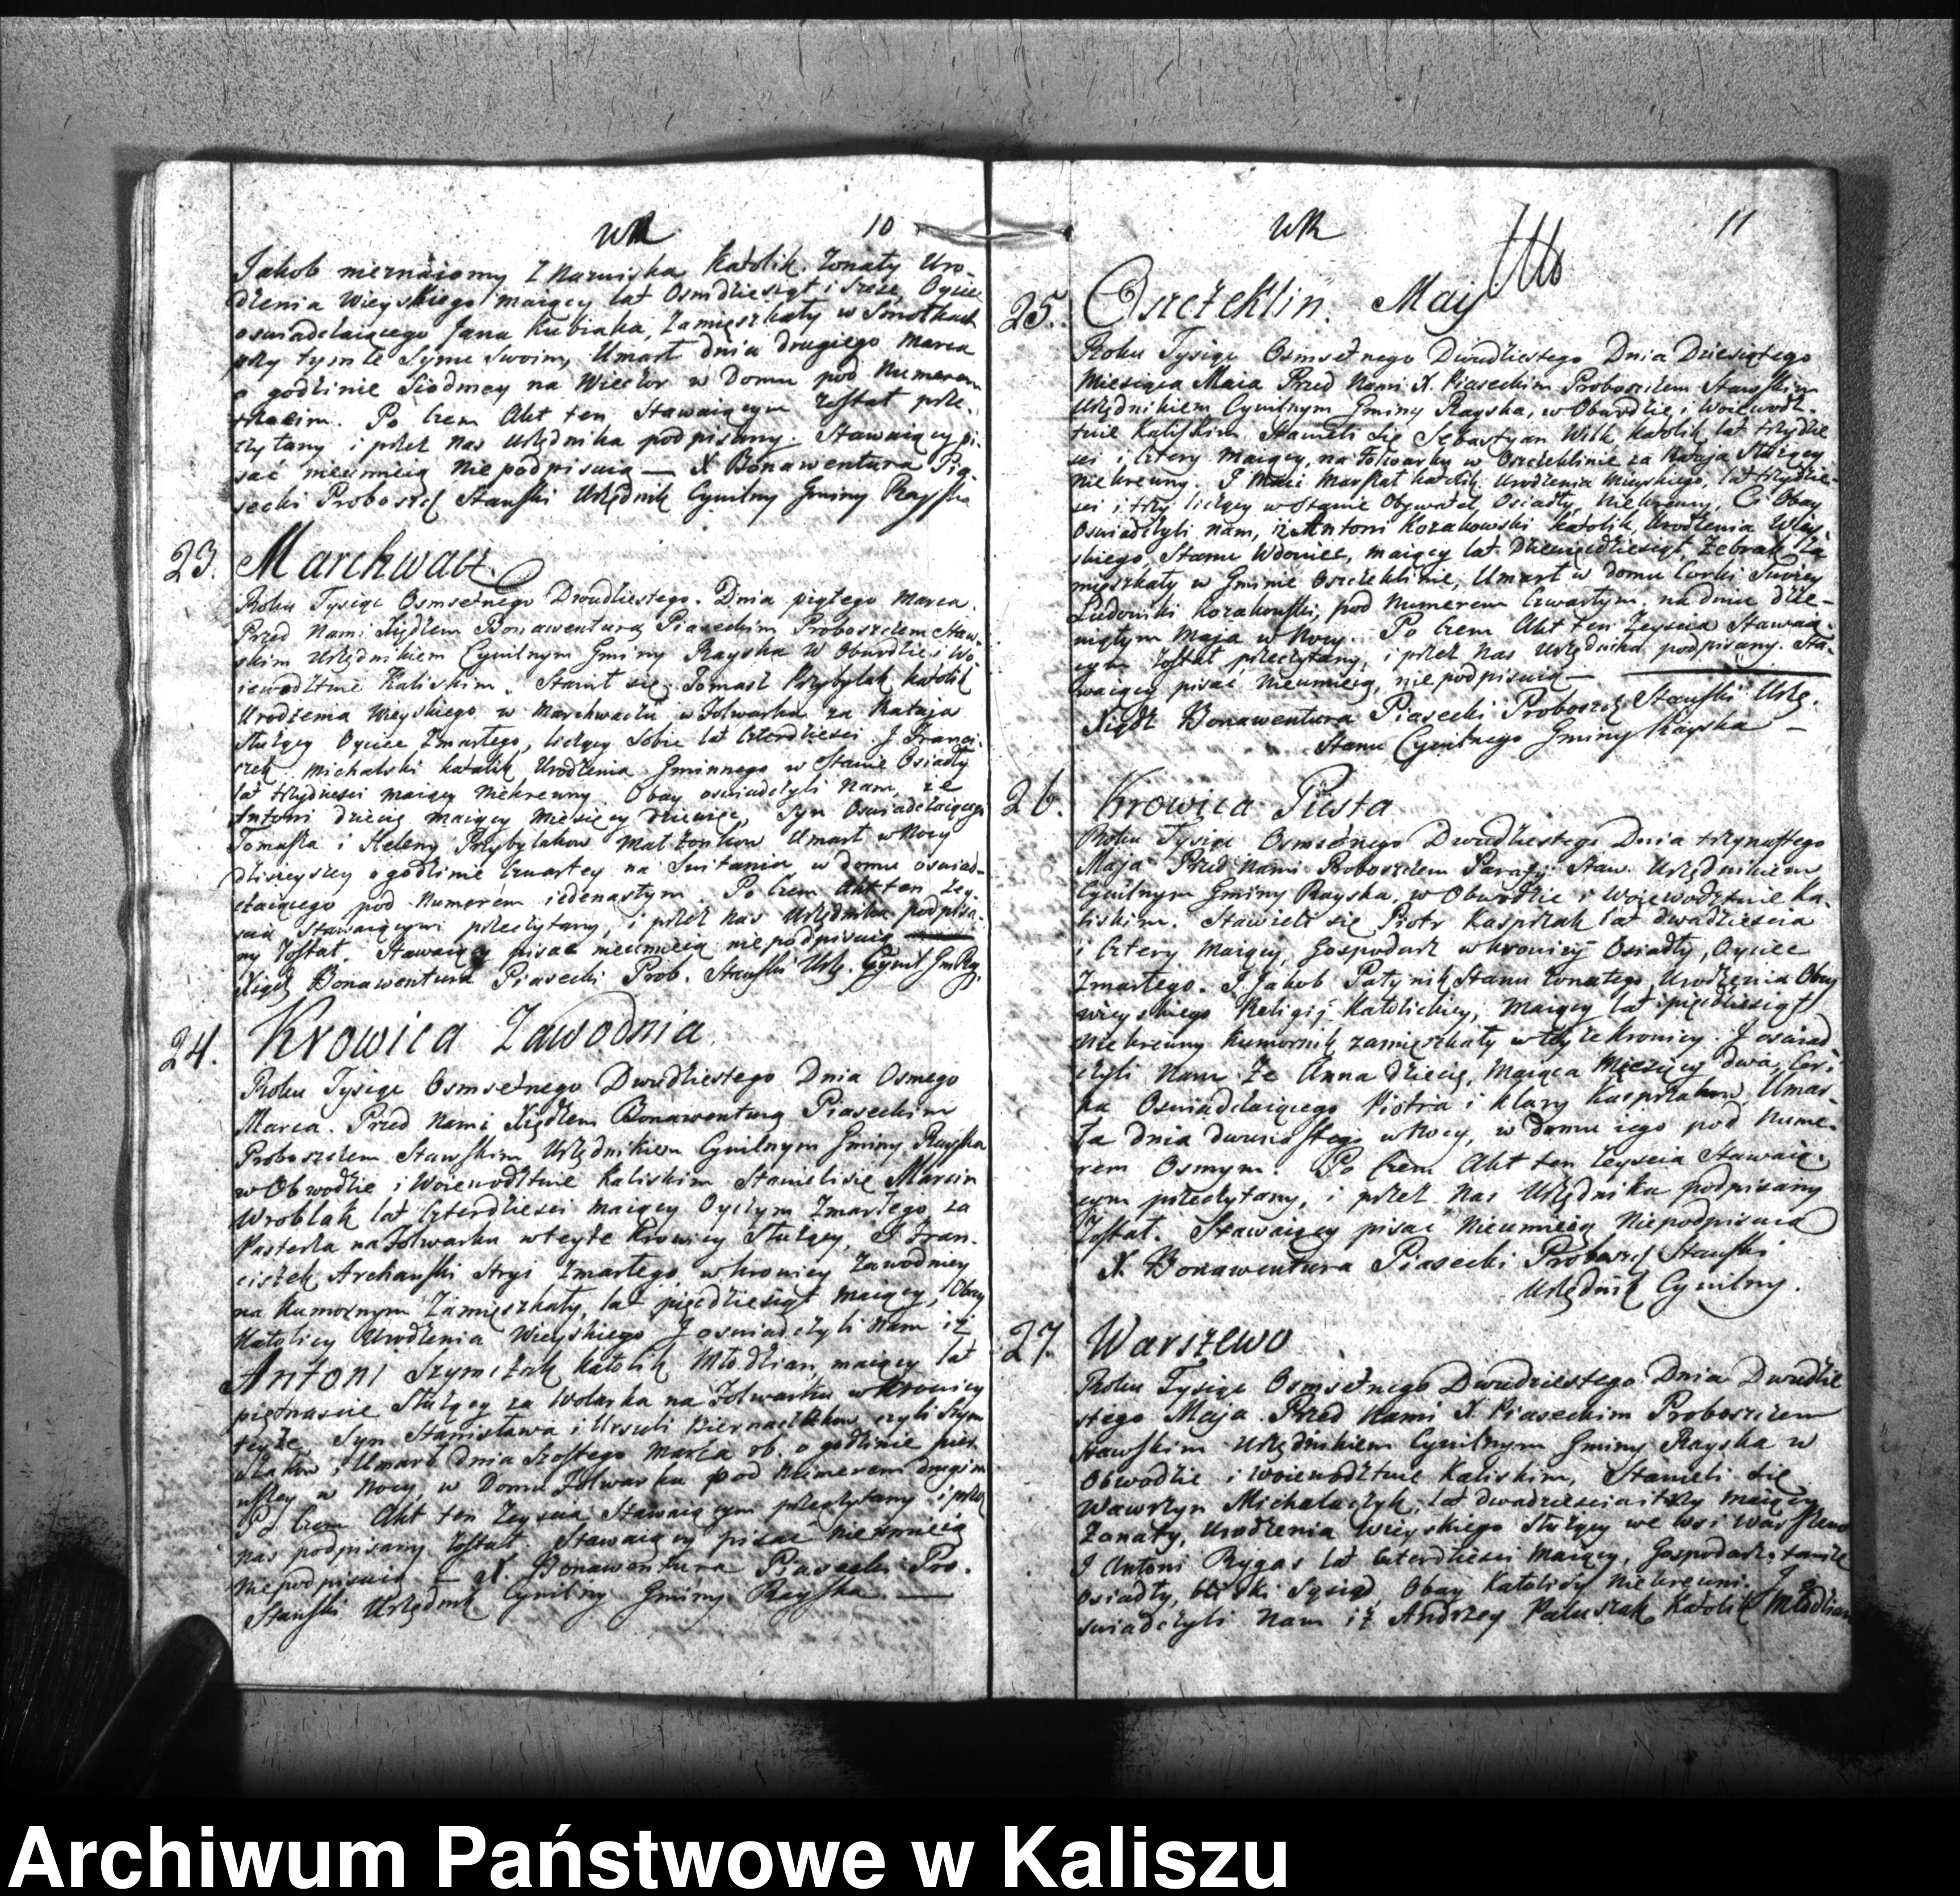 WR 10
Jakob nieznaiomy z Nazwiska Katolik Zonaty Uro-
dzenia Wieyskiego maiący lat Osmdziesiąt i Sześć, Oyciec
oswiadczaiącego Jana Kubiaka, Zamięszkały w Smołkach
przy tymże Synu Swoim, Umarł dnia drugiego Marca
o godzinie Siodmey na Wieczor w Domu pod Numerem
trzecim. Po czem Akt ten Stawaiącym został prze-
czytany i przez nas Urzędnika podpisany. Stawaiący pi-
sać nieumieią Niepodpisuią — X Bonawentura Pia-
secki Proboszcz Stawski Urzędnik Cywilny Gminy Rayska
23. Marchwacz
Roku Tysiąc Osmsetnego Dwudziestego. Dnia piątego Marca.
Przed Nami Xiędzem Bonawenturą Piaseckim Proboszczem Staw-
skim Urzędnikiem Cywilnym Gminy Rayska w Obwodzie i Wo-
iewodztwie Kaliskim. Stawił się Tomasz Przybylak Katolik
Urodzenia Wieyskiego w Marchwaczu w Folwarku za Rataja
Służący Oyciec Zmarłego, liczący Sobie lat Czterdziesci. J Franci-
szek Michalski Katolik Urodzenia Gminnego w Stanie Osiadły
lat trzydziesci maiący Niekrewny. Obay oswiadczyli Nam, że
Antoni dziecię maiący Miesięcy dziewięć, Syn Oswiadczaiącego
Tomasza i Heleny Przybylakow Małżonkow Umarł w Nocy
dzisieyszey o godzinie Czwartey na Switaniu w domu oswiad-
czaiącego pod Numerem iedenastym. Po Czem Akt ten Zey-
scia Stawaiącymi przeczytany, i przez nas Urzędnika podpisa-
ny Został. Stawaiący pisać nieumieią niepodpisuią
Xiądz Bonawentura Piasecki Prob. Stawski Urzę. Cywil Gm Ray.
24. Krowica Zawodnia
Roku Tysiąc Osmsetnego Dwudziestego Dnia Osmego
Marca. Przed Nami Xiędzem Bonawenturą Piaseckim
Proboszczem Stawskim Urzędnikiem Cywilnym Gminy Rayska
w Obwodzie i Woiewodztwie Kaliskim Stawieli się Marcin
Wroblak lat Czterdziesci maiący Oyczym Zmarłego za
Pasterza na Folwarku w teyże Krowicy Służący, J Fran-
ciszek Archanski Stryi Zmarłego w Krowicy Zawodniey
na Kumornym Zamięszkały, lat pięcdziesiąt maiący, Obay
Katolicy Urodzenia Wieyskiego J oswiadczyli Nam iż
Antoni Szymczak Katolik Młodzian, maiący lat
piętnascie Służący za Wolarka na Folwarku w Krowicy
teyże. Syn Stanisława i Ursuli Biernaczkow czyli Szym
czakow, Umarł dnia Szostego Marca rb. o godzinie pier
wszey w Nocy, w Domu Folwarku pod Numerem drugim
Po Czem Akt ten Zeyscia Stawaiącym przeczytany i przez
nas podpisany Został. Stawaiący pisać nieumieią
Niepodpisuią — X. Bonawentura Piasecki Pro.
Stawski Urzędnik Cywilny Gminy Rayska. —
WR 11
25. Oszczeklin. Maij
Roku Tysiąc Osmsetnego Dwudziestego Dnia Dziesiątego
Miesiąca Maia Przed Nami X. Piaseckim Proboszczem Stawskim
Urzędnikiem Cywilnym Gminy Rayska, w Obwodzie i Woiewodz-
twie Kaliskim Stawieli się Sebastyan Wilk Katolik lat trzydzie
sci i Cztery maiący, na Folwarku w Oszczeklinie za Rataja Służący
niekrewny. J Maci Marszał Katolik Urodzenia Wieyskiego, lat trzydzie-
sci i trzy liczący w Stanie Obywatel Osiadły, Niekrewny, Ci Obay
Oswiadczyli Nam, iż Antoni Kozakowski Katolik Urodzenia Wiey
skiego, Stanu Wdowiec, maiący lat Dziewięcdziesiąt, Zebrak Za
mięszkały w Gminie Oszczeklinie, Umarł w domu Corki Swoiey
Ludowiki Kozakowski, pod Numerem Czwartym, na dniu dzie-
wiątym Maja w Nocy. Po Czem Akt ten Zeyscia Stawaią-
cym Został przeczytany, i przez Nas Urzędnika podpisany. Sta-
waiący pisać Nieumieią, niepodpisuią —
Xiądz Bonawentura Piasecki Proboszcz Stawski Urzę.
Stanu Cywilnego Gminy Rayska —
26. Krowica Pusta
Roku Tysiąc Osmsetnego Dwudziestego Dnia trzynastego
Maja Przed Nami Proboszczem Parafij Staw. Urzędnikiem
Cywilnym Gminy Rayska, w Obwodzie i Woiewodztwie Ka-
liskim. Stawieli się Piotr Kasprzak lat dwadziescia
i Cztery Maiący, Gospodarz w Krowicy Osiadły, Oyciec
Zmarłego. J Jakob Patynik Stanu Zonatego Urodzenia Obay
wieyskiego Religij Katolickiey, Maiący lat pięcdziesiąt
Niekrewny Kumornik zamięszkały w teyże Krowicy. J oswiad-
czyli Nam Że Anna dziecię, Maiąca Miesięcy dwa, Cor-
ka Oswiadczaiącego Piotra i Klary Kasprzakow, Umar-
ła dnia dwunastego w Nocy, w domu iego pod Nume-
rem Osmym. Po Czem Akt ten Zeyscia Stawaią-
cym przeczytany, i przez Nas Urzędnika podpisany
Został. Stawaiący pisać Nieumieią Niepodpisuią
X. Bonawentura Piasecki Proboszcz Stawski
Urzędnik Cywilny.
27. Warszewo
Roku Tysiąc Osmsetnego Dwudziestego Dnia Dwudzie
stego Maja Przed Nami X. Piaseckim Proboszczem
Stawskim Urzędnikiem Cywilnym Gminy Rayska w
Obwodzie i Woiewodztwie Kaliskim, Stawieli się
Wawrzyn Michalaczyk, lat dwadziescia i trzy maiący
Zonaty, Urodzenia Wieyskiego Służący we Wsi Warszewo
J Antoni Rygas lat Czterdziesci Maiący, Gospodarz tamże
osiadły, bliski Sąsiad, Obay Katolicy Niekrewni. J o
swiadczyli Nam iż Andrzey Paluszak Katolik Młodzian
Archiwum Państwowe w Kaliszu